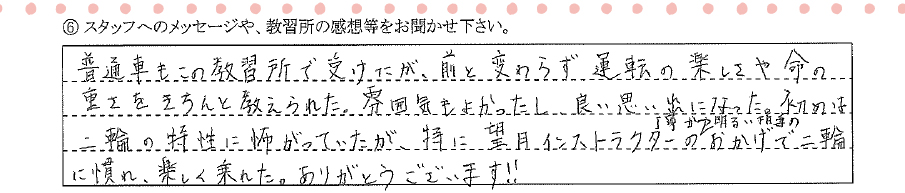 ⑥ スタッフへのメッセージや、教習所の感想等をお聞かせ下さい。
普通車もこの教習所で受けたが、前と変わらず運転の楽しさや命の
重さをきちんと教えられた。雰囲気もよかったし、良い思い出になった。初めは
二輪の特性に怖がっていたが、特に望月インストラクターの丁寧かつ明るい指導のおかげで二輪
に慣れ、楽しく乗れた。ありがとうございます!!